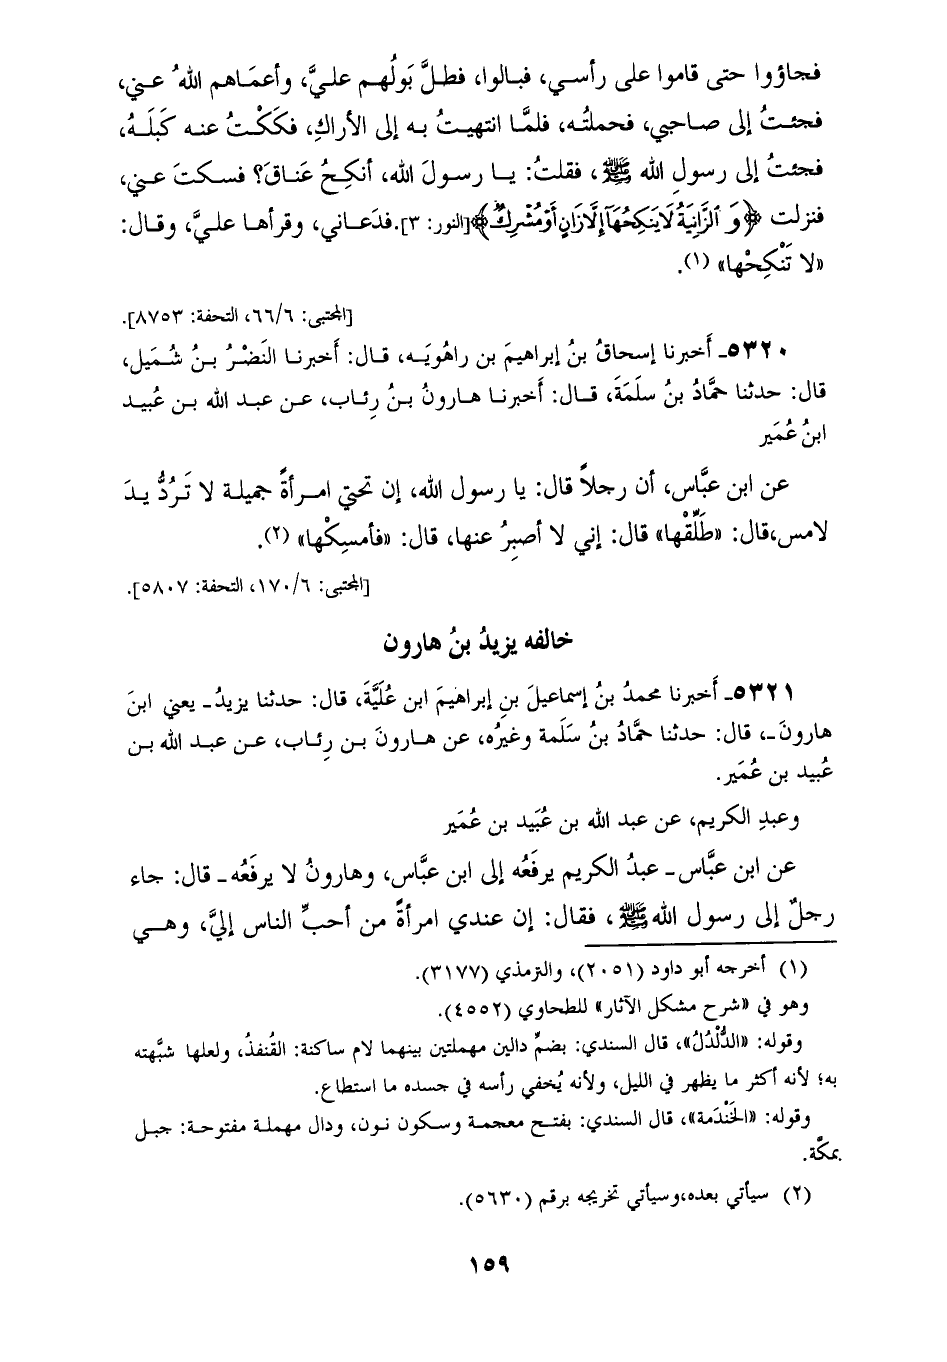 فجاؤوا حتى قاموا على رأسي، فبالوا، فطلَّ بَولُهم عليَّ، وأعمَاهم اللهُ عني،
فجئتُ إلى صاحبي، فحملتُه، فلمَّا انتهيتُ به إلى الأراكِ، فكَكْتُ عنه كَبَلَهُ،
فجئتُ إلى رسولِ الله ﷺ، فقلتُ: يا رسولَ الله، أنكِحُ عَناقَ؟ فسكتَ عني،
فنزلت ﴿وَالزَّانِيَةُ لَا يَنكِحُهَا إِلَّا زَانٍ أَوْ مُشْرِكٌ﴾[النور: ٣].فدَعاني، وقرأها عليَّ، وقال:
«لا تَنْكِحْها» (١).
[المجتبى: ٦/٦٦، التحفة: ٨٧٥٣].
٥٣٢٠ـ أَخبرنا إسحاقُ بنُ إبراهيمَ بن راهُويَه، قال: أَخبرنا النَضْرُ بنُ شُمَيل،
قال: حدثنا حمَّادُ بنُ سلَمَةَ، قال: أَخبرنا هارونُ بنُ رِئاب، عن عبد الله بن عُبيد
ابنُ عُمَير
عن ابن عبَّاس، أن رجلاً قال: يا رسول الله، إن تحتي امرأةً جميلة لا تَرُدُّ يدَ
لامس،قال: «طَلِّقْها» قال: إني لا أصبِرُ عنها، قال: «فأمسِكْها» (٢).
[المجتبى: ٦/١٧٠، التحفة: ٥٨٠٧].
خالفه يزيدُ بنُ هارون
٥٣٢١ـ أَخبرنا محمدُ بنُ إسماعيلَ بنِ إبراهيمَ ابن عُلَيَّةَ، قال: حدثنا يزيدُ ـ يعني ابنَ
هارونَ ـ، قال: حدثنا حمَّادُ بنُ سَلَمة وغيرُه، عن هارونَ بن رِئاب، عن عبد الله بن
عُبيد بن عُمَير.
وعبدِ الكريم، عن عبد الله بن عُبَيد بن عُمَير
عن ابن عبَّاس ـ عبدُ الكريم يرفَعُه إلى ابن عبَّاس، وهارونُ لا يرفَعُه ـ قال: جاء
رجلٌ إلى رسول الله ﷺ، فقال: إن عندي امرأةً من أحبِّ الناس إليَّ، وهي
(١) أخرجه أبو داود (٢٠٥١)، والترمذي (٣١٧٧).
وهو في «شرح مشكل الآثار» للطحاوي (٤٥٥٢).
وقوله: «الدُّلْدُلُ»، قال السندي: بضمِّ دالين مهملتين بينهما لام ساكنة: القُنفذُ، ولعلها شبَّهته
به؛ لأنه أكثر ما يظهر في الليل، ولأنه يُخفي رأسه في جسده ما استطاع.
وقوله: «الخَنْدَمة»، قال السندي: بفتح معجمة وسكون نون، ودال مهملة مفتوحة: جبل
بمكَّة.
(٢) سيأتي بعده،وسيأتي تخريجه برقم (٥٦٣٠).
١٥٩